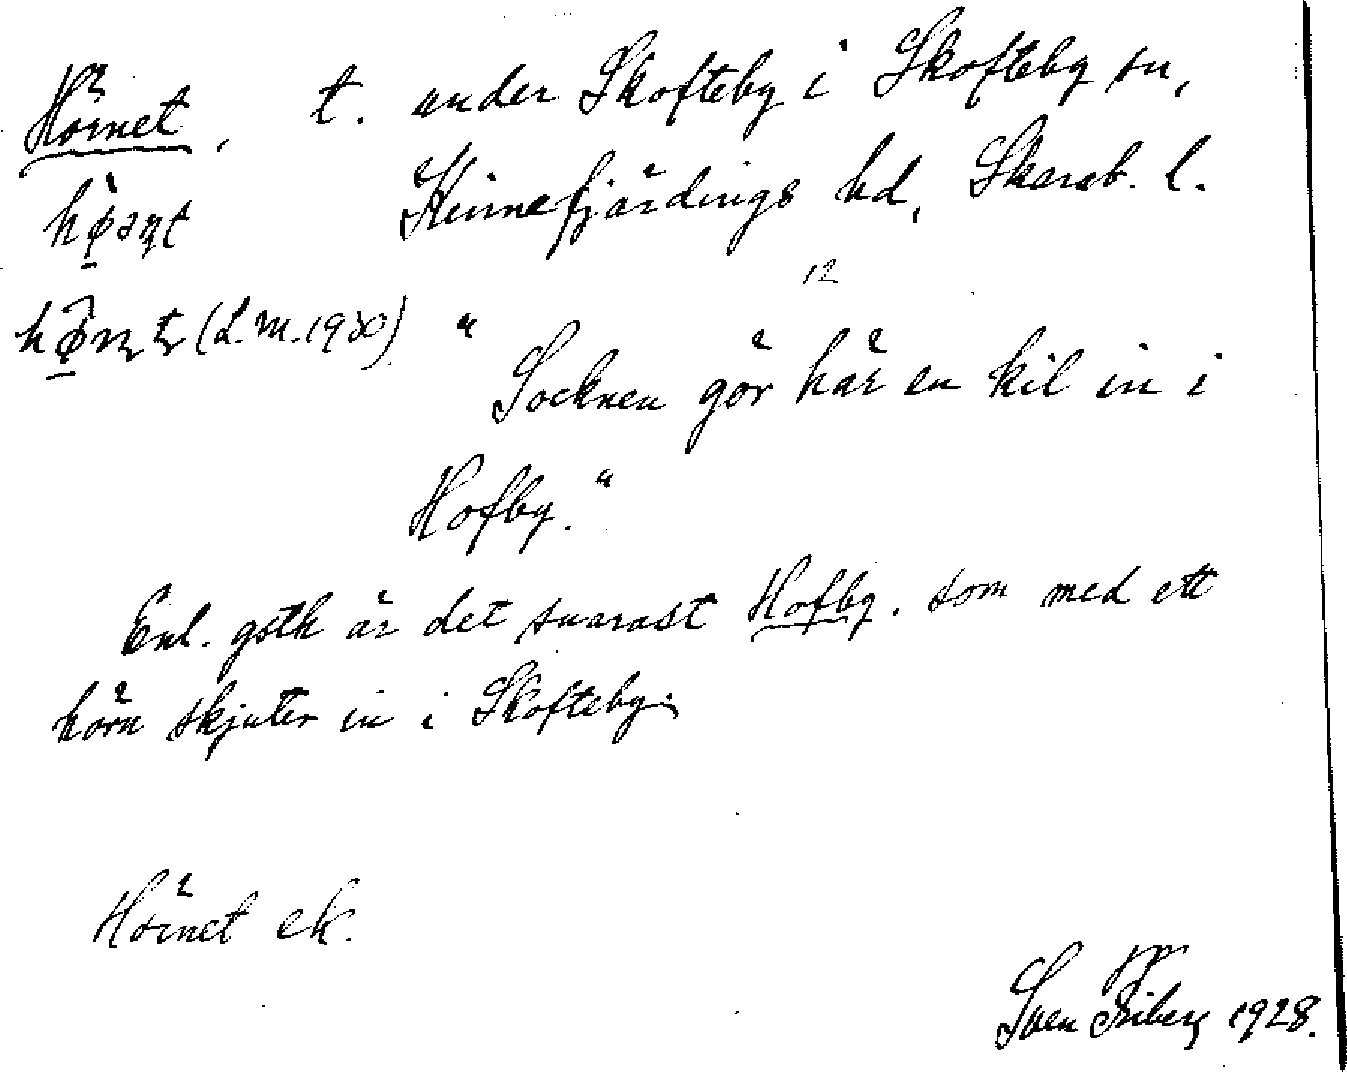 Hörnet, t. under Skofteby i Skofteby sn,
Kinnefjärdings hd, Skarab. l.
12
(L.M. 1930)
"Socknen gör här en kil in i
Hofby."
Enl. gstk är det snarast Hofby, som med ett
hörn skjuter in i Skofteby.
Hörnet ek.
Sven Friberg 1928.